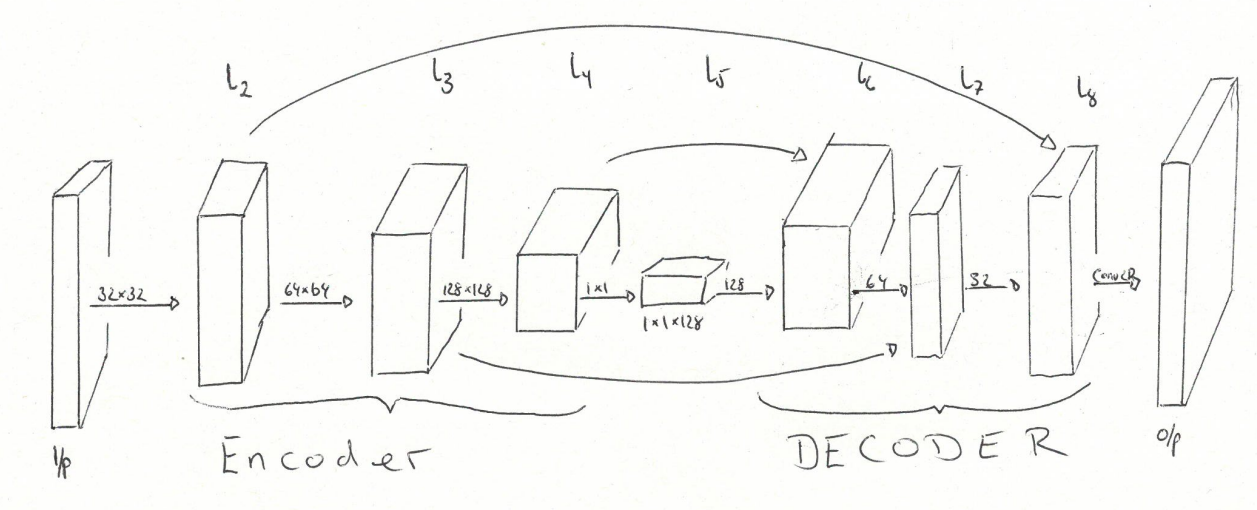 L2 L3 L4 L5 L6 L7 L8
32×32 64×64 128×128 1×1 128 64 32 Conv2D
1×1×128
I/p Encoder DECODER O/p